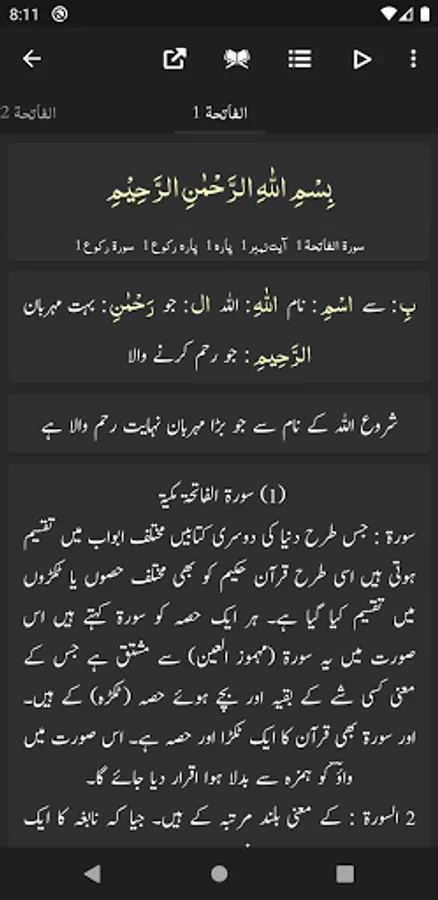 8:11
الفاتحة 1
الفاتحة 2
بِسْمِ اللّٰهِ الرَّحْمٰنِ الرَّحِیْمِ
سورۃ الفاتحة 1 آیت نمبر 1 پارہ 1 پارہ رکوع 1 سورۃ رکوع 1
بِ: سے اسْمِ: نام اللّٰهِ: اللہ ال: جو رَحْمٰنِ: بہت مہربان
الرَّحِیمِ: جو رحم کرنے والا
شروع اللہ کے نام سے جو بڑا مہربان نہایت رحم والا ہے
(1) سورۃ الفاتحۃ مکیۃ
سورۃ : جس طرح دنیا کی دوسری کتابیں مختلف ابواب میں تقسیم
ہوتی ہیں اسی طرح قرآن حکیم کو بھی مختلف حصوں یا ٹکڑوں
میں تقسیم کیا گیا ہے۔ ہر ایک حصہ کو سورۃ کہتے ہیں اس
صورت میں یہ سورۃ (مہموز العین) سے مشتق ہے جس کے
معنی کسی شے کے بقیہ اور بچے ہوئے حصہ (ٹکڑہ) کے ہیں۔
اور سورۃ بھی قرآن کا ایک ٹکڑا اور حصہ ہے۔ اس صورت میں
واؤ کو ہمزہ سے بدلا ہوا اقرار دیا جائے گا۔
2 السورۃ : کے معنی بلند مرتبہ کے ہیں۔ جیا کہ نابغہ کا ایک